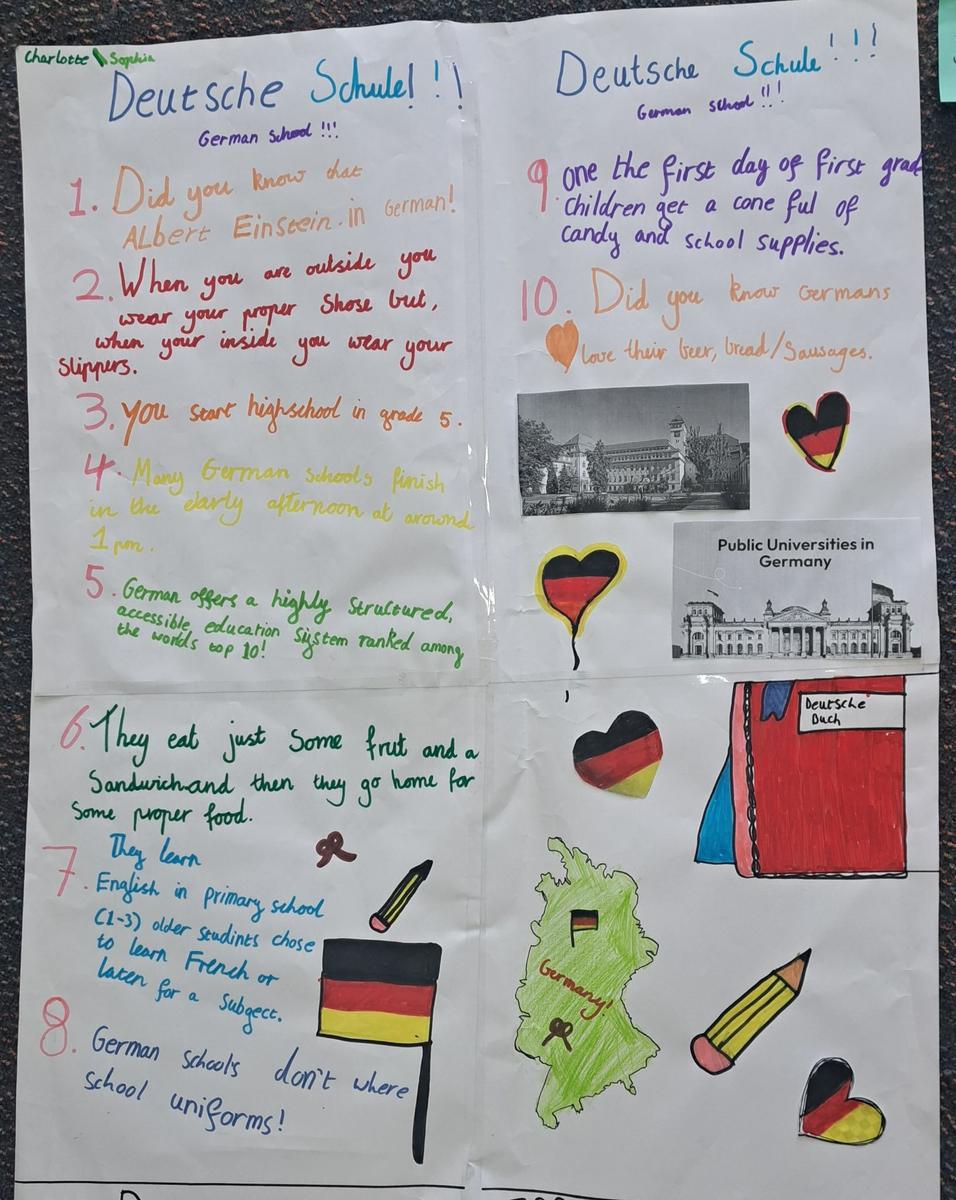 Charlotte Sophia
Deutsche Schule!!!
German School!!!
1. Did you know that
Albert Einstein in German!
2. When you are outside you
wear your proper Shose but,
when your inside you wear your
Slippers.
3. you start highschool in grade 5.
4. Many German School's finish
in the elarly afternoon at arownd
1 pm.
5. German offers a highly Structured,
accessible education System ranked among
the worlds top 10!
6. They eat just Some frut and a
Sandwich and then they go home for
Some proper food.
They learn
7. English in primary school
(1-3) older studints chose
to learn French or
laten for a Subgect.
8. German schools don't where
school uniforms!
Deutsche Schule!!!
German School!!!
9 one the first day of first grade
Children get a cone ful of
candy and school supplies.
10. Did you know Germans
love their beer, bread/Sausages.
Public Universities in
Germany
Deutsche
Buch
Germany!